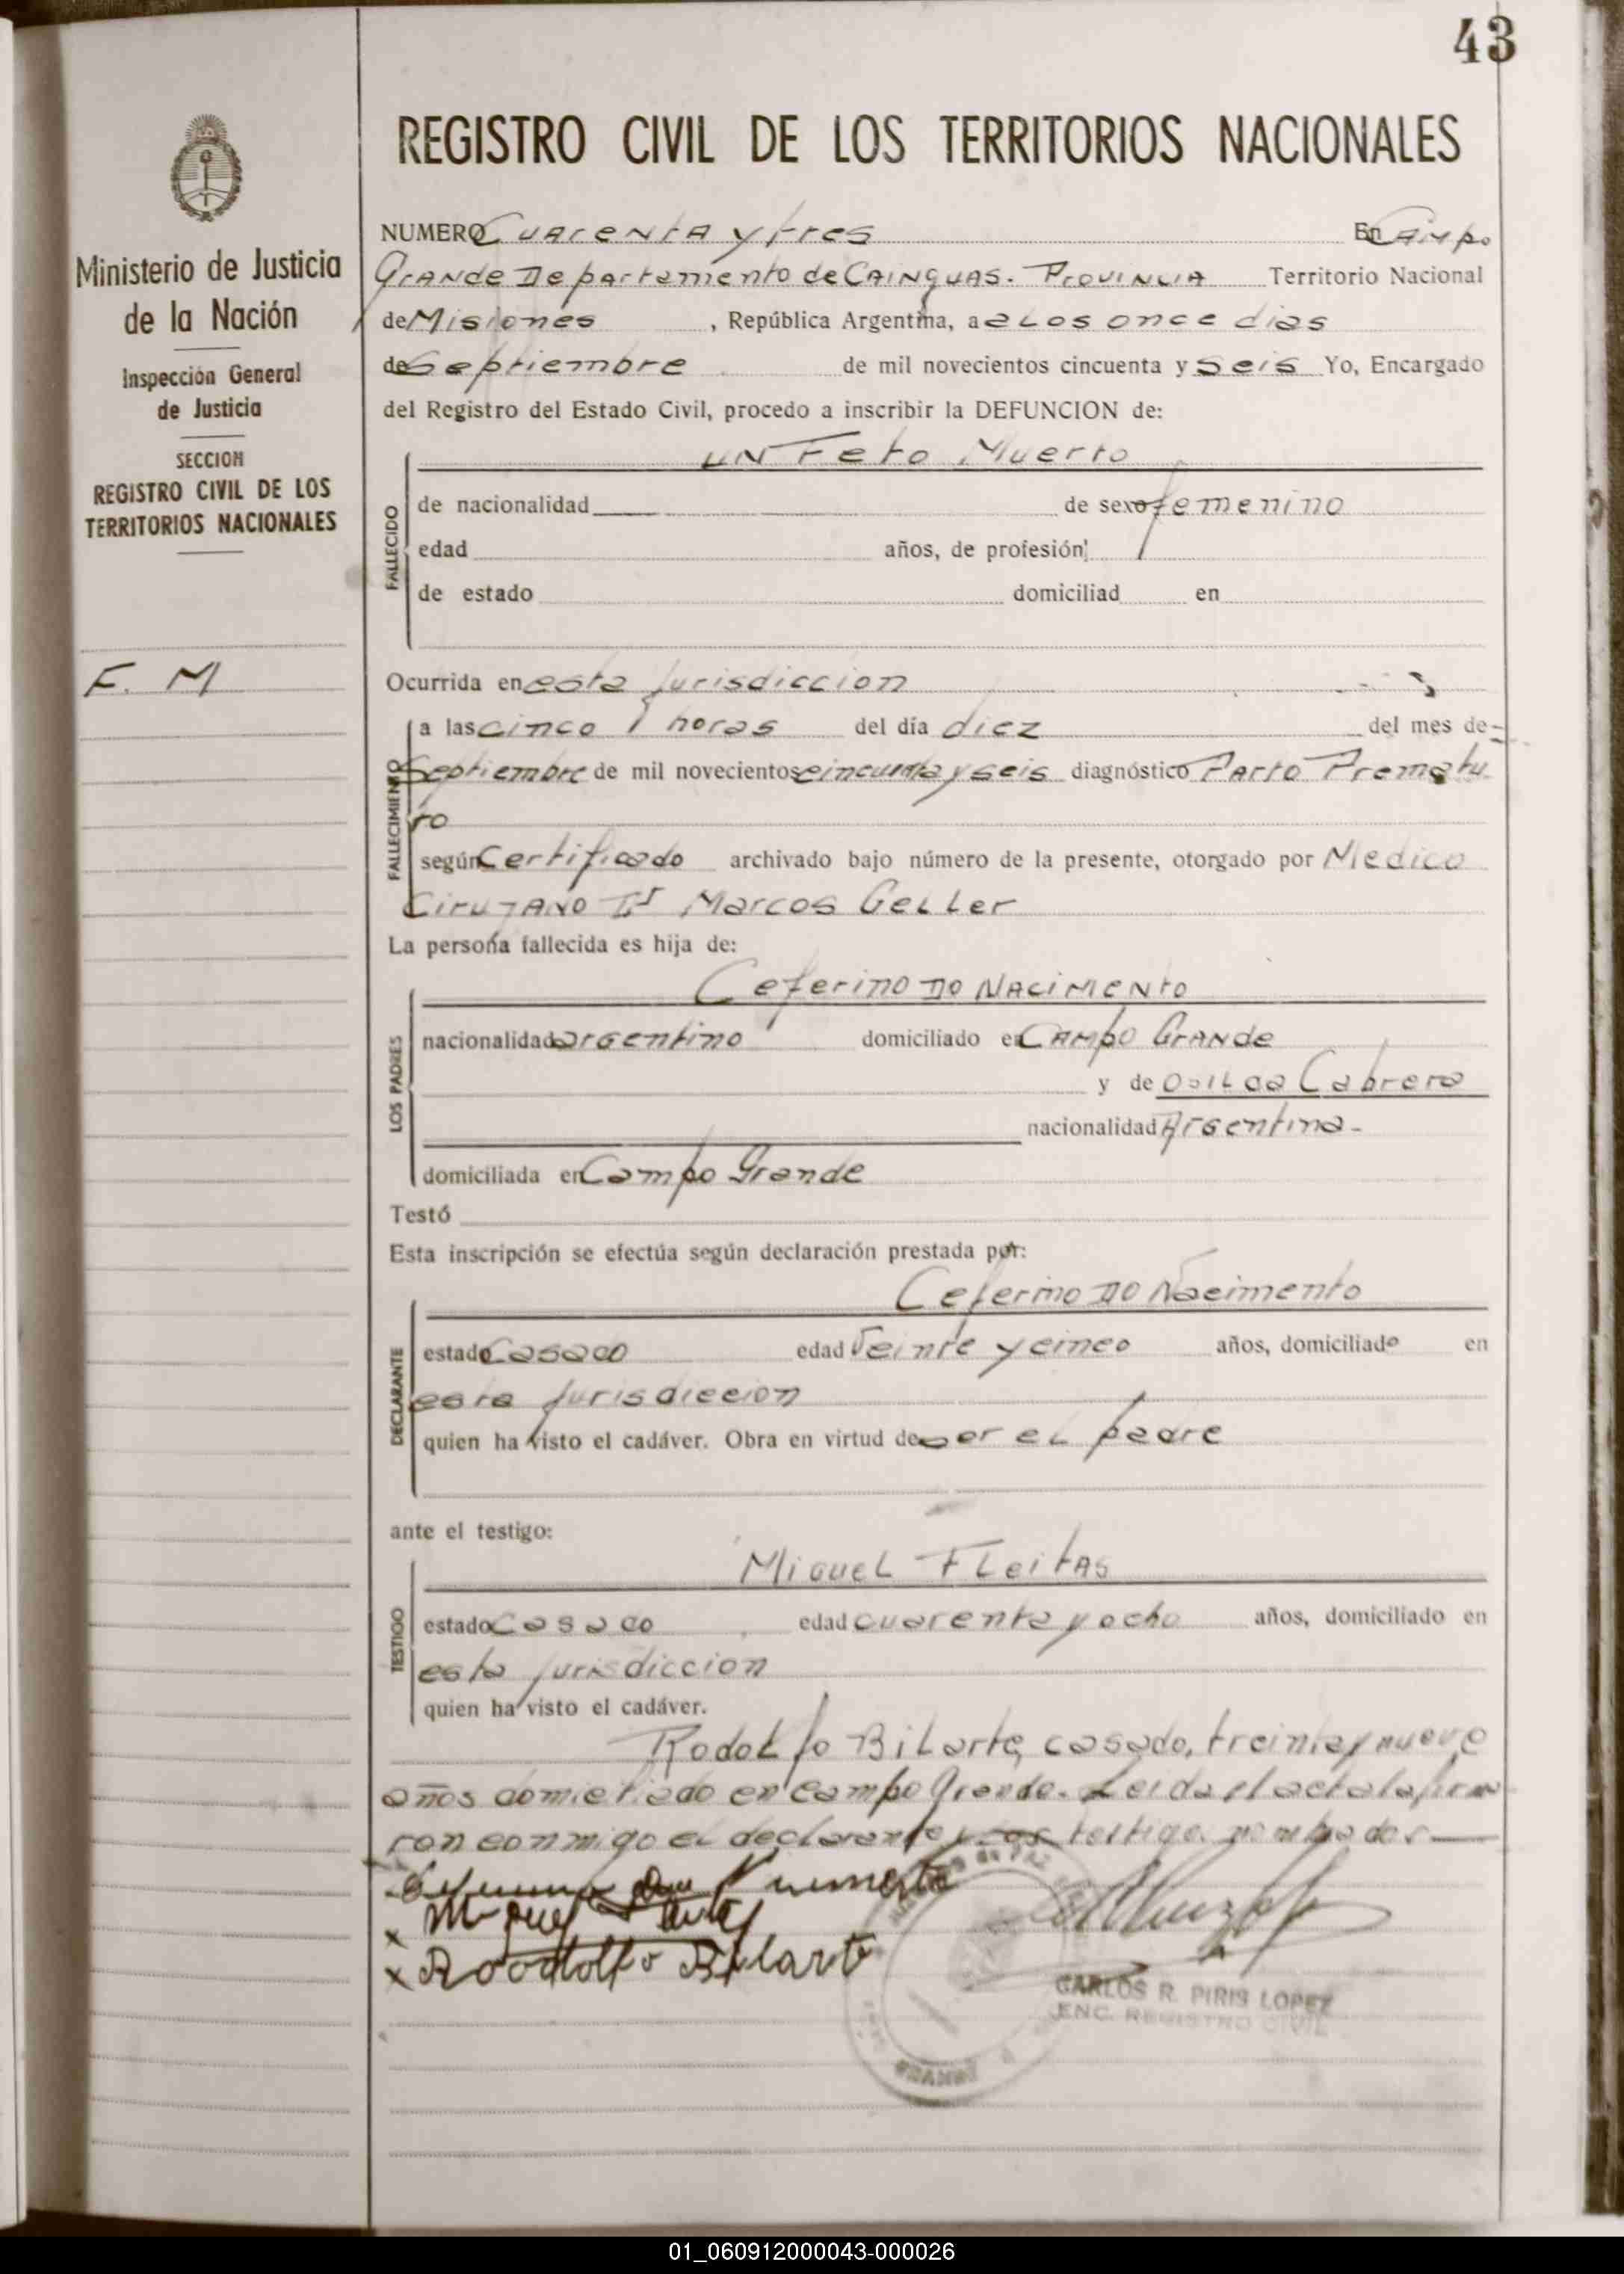 43
REGISTRO CIVIL DE LOS TERRITORIOS NACIONALES
Ministerio de Justicia
de la Nación
Inspección General
de Justicia
SECCION
REGISTRO CIVIL DE LOS
TERRITORIOS NACIONALES
F. M
NUMERO Cuarenta y tres En Campo
Grande Departamento de Cainguas. Provincia Territorio Nacional
de Misiones, República Argentina, a a los once dias
de Septiembre de mil novecientos cincuenta y seis Yo, Encargado
del Registro del Estado Civil, procedo a inscribir la DEFUNCION de:
un Feto Muerto
FALLECIDO
de nacionalidad de sexo femenino
edad años, de profesión
de estado domiciliad en
Ocurrida en esta jurisdiccion
FALLECIMIENTO
a las cinco horas del día diez del mes de
Septiembre de mil novecientos cincuenta y seis diagnóstico Parto Prematu
ro
según Certificado archivado bajo número de la presente, otorgado por Medico
Cirujano Dr Marcos Geller
La persona fallecida es hija de:
LOS PADRES
Ceferino Do Nacimento
nacionalidad argentino domiciliado en Campo Grande
y de Cabrera
nacionalidad Argentina.-
domiciliada en Campo Grande
Testó
Esta inscripción se efectúa según declaración prestada por:
DECLARANTE
Ceferino Do Nacimento
estado Casado edad Veinte y cinco años, domiciliado en
esta jurisdiccion
quien ha visto el cadáver. Obra en virtud de ser el padre
ante el testigo:
TESTIGO
Miguel Fleitas
estado Casado edad cuarenta y ocho años, domiciliado en
esta jurisdiccion
quien ha visto el cadáver.
Rodolfo Bilarte, casado, treinta y nueve
años domiciliado en Campo Grande. Leida el acta la firma
ron conmigo el declarante y los testigos nombrados
Miguel
x Roodolfo Bilarte
GRANDE
CARLOS R. PIRIS LOPEZ
ENC. REGISTRO CIVIL
01_060912000043-000026